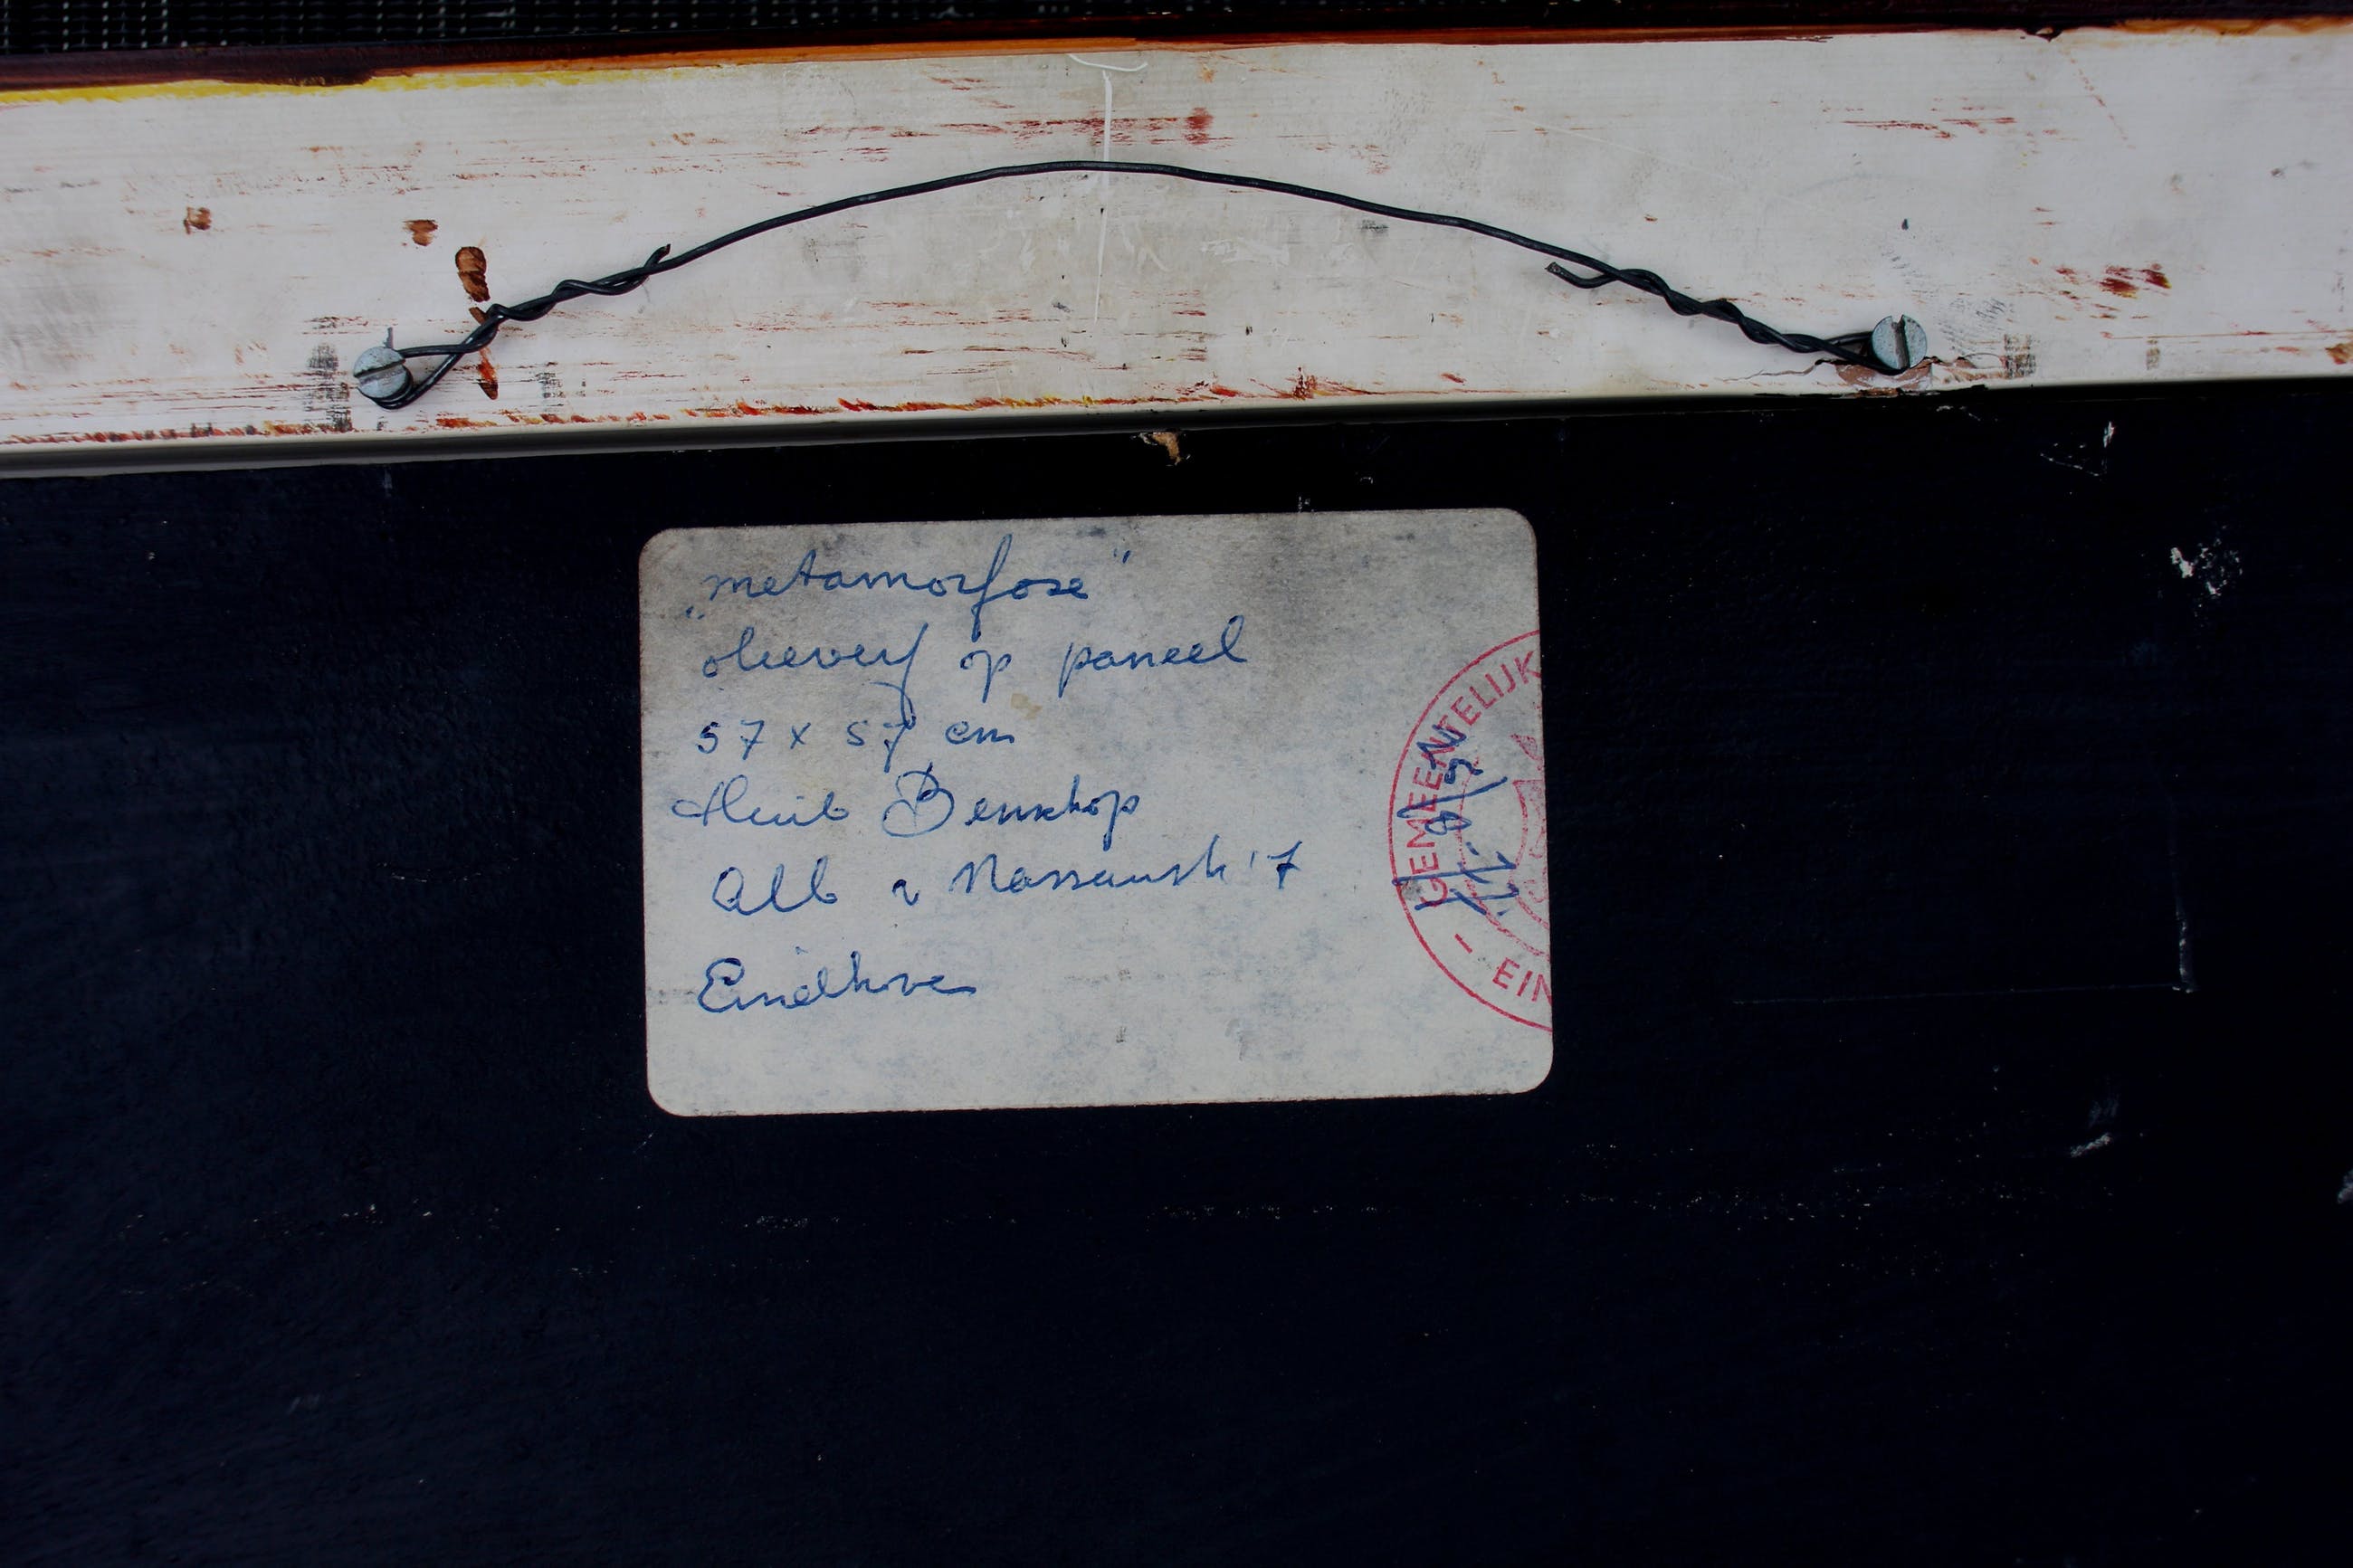 „metamorfose"
olieverf op paneel
57 x 57 cm
Huib Benschop
Alb v Nassaustr 17
Eindhoven
GEMEENTELIJK
- EIN